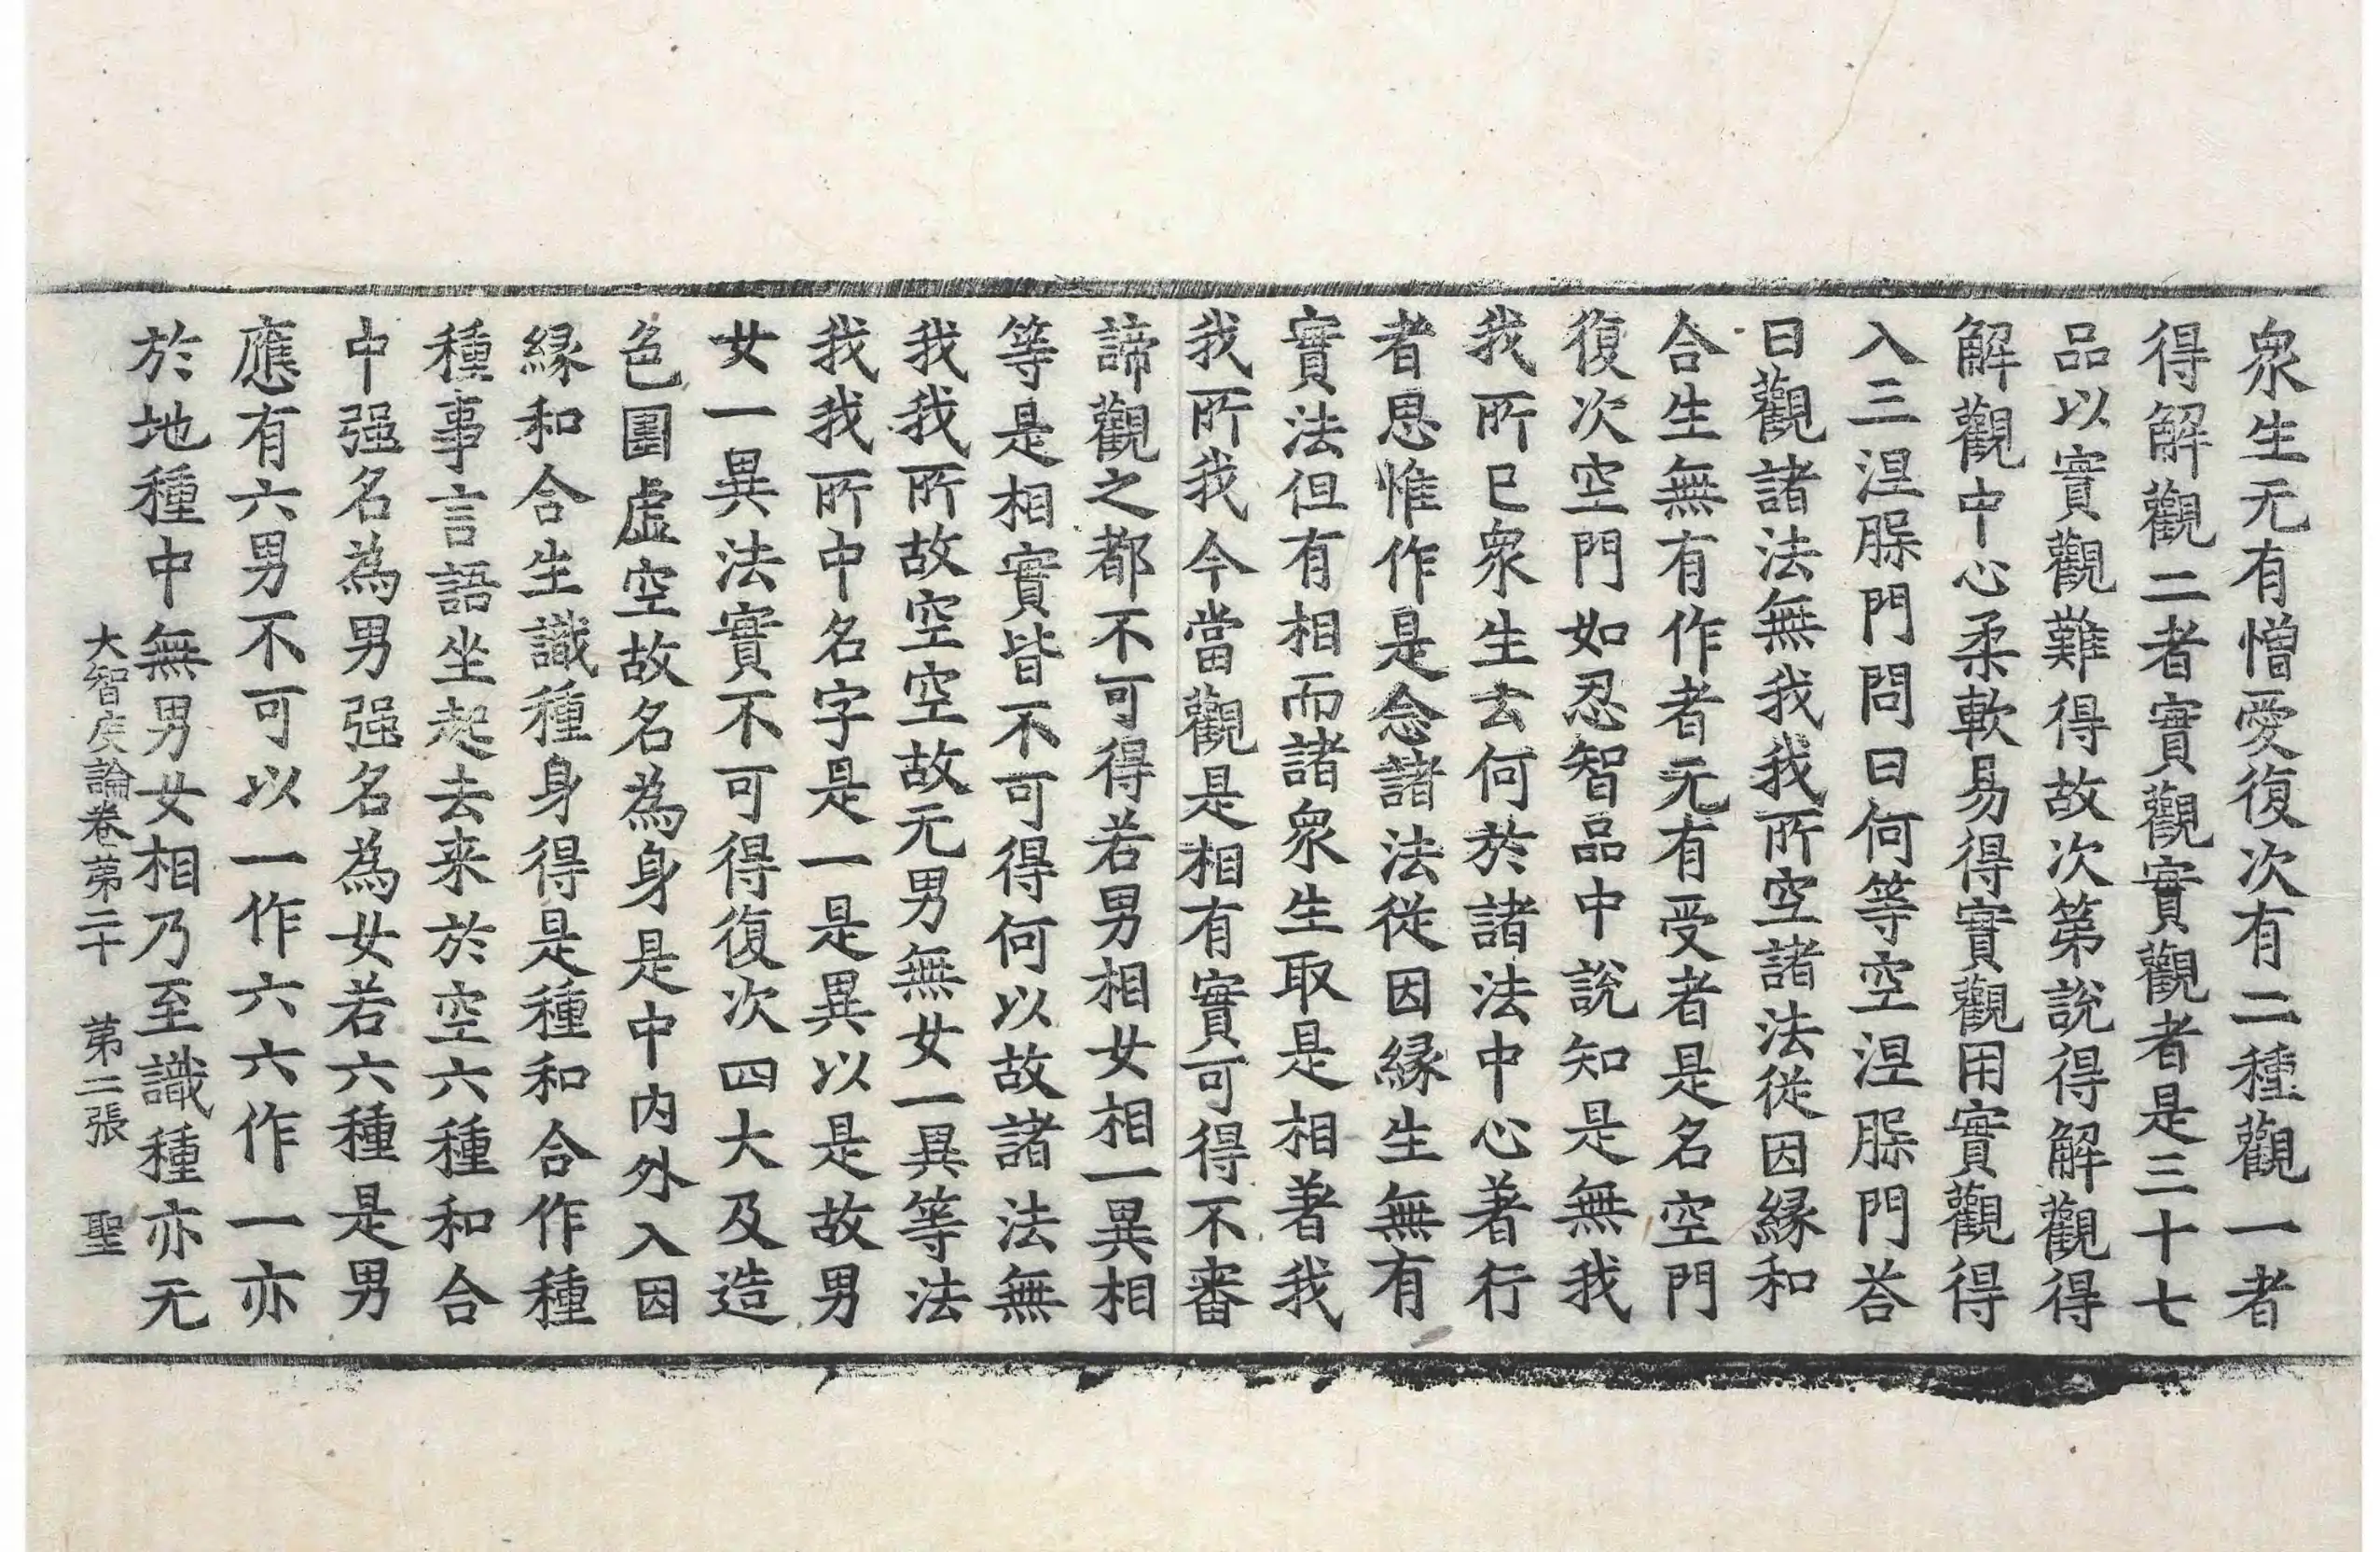 衆生无有憎愛復次有二種觀一者
得解觀二者實觀實觀者是三十七
品以實觀難得故次第說得解觀得
解觀中心柔軟易得實觀用實觀得
入三涅脲門問曰何等空涅脲門荅
曰觀諸法無我我所空諸法從因緣和
合生無有作者无有受者是名空門
復次空門如忍智品中說知是無我
我所已衆生去何於諸法中心著行
者思惟作是念諸法從因緣生無有
實法但有相而諸衆生取是相著我
我所我今當觀是相有實可得不審
諦觀之都不可得若男相女相一異相
等是相實皆不可得何以故諸法無
我我所故空空故无男無女一異等法
我我所中名字是一是異以是故男
女一異法實不可得復次四大及造
色圍虛空故名為身是中內外入因
緣和合生識種身得是種和合作種
種事言語坐起去来於空六種和合
中强名為男强名為女若六種是男
應有六男不可以一作六六作一亦
於地種中無男女相乃至識種亦无
大智度論卷第二十　第二張　聖